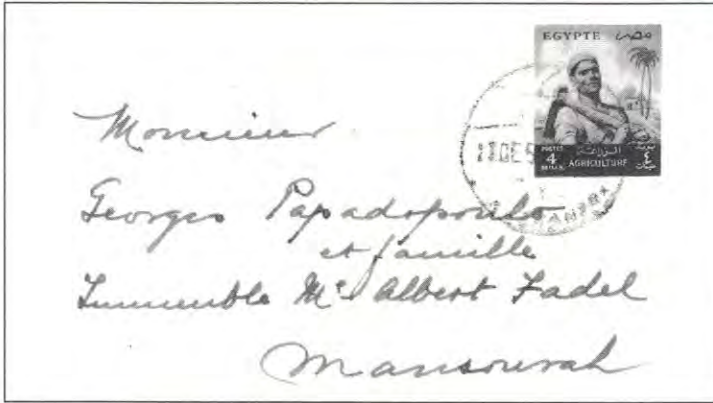 EGYPTE مصر
POSTES الزراعة
4 AGRICULTURE ٤
Monsieur
Georges Papadopoulo
et famille
Immeuble Me Albert Fadel
Mansourah